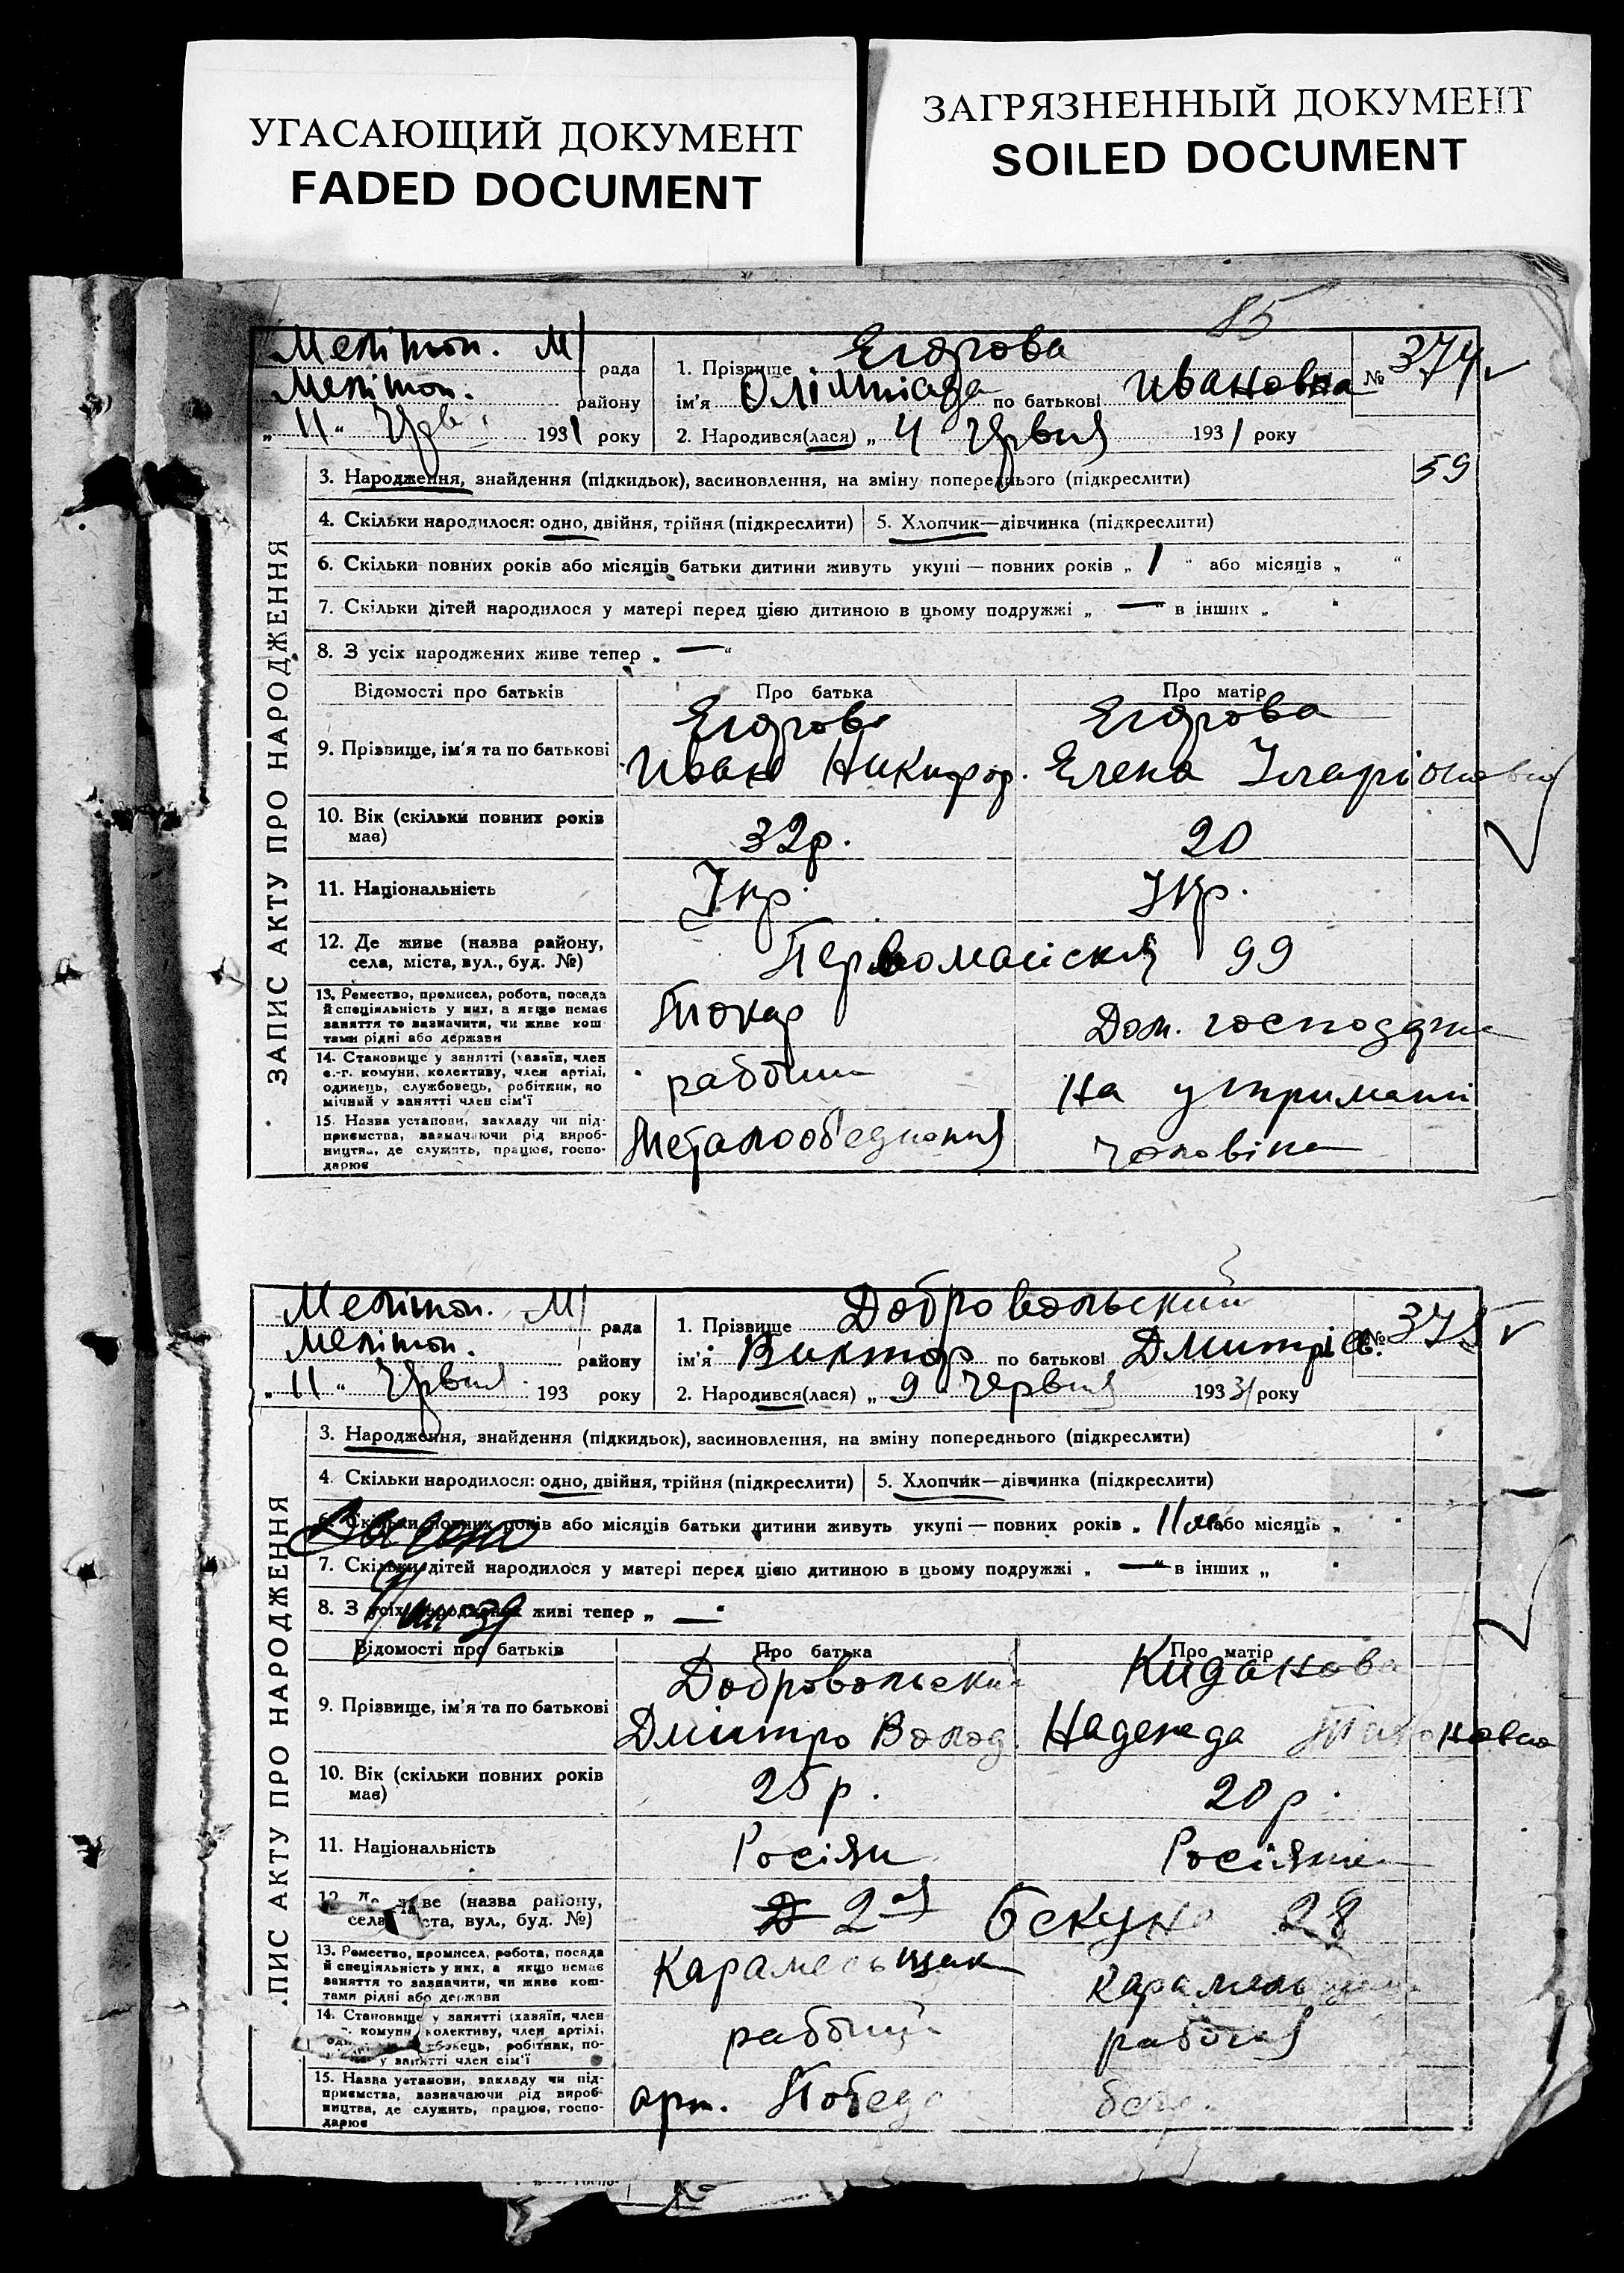 УГАСАЮЩИЙ ДОКУМЕНТ
FADED DOCUMENT
ЗАГРЯЗНЕННЫЙ ДОКУМЕНТ
SOILED DOCUMENT
85
ЗАПИС АКТУ ПРО НАРОДЖЕННЯ
Мелітоп. М/ рада
Мелітоп. району
„ 11 “ Черв. 1931 року
1. Прізвище Егорова
ім'я Олімпіада по батькові Ивановна
№ 374
2. Народився(лася) „ 4 Червня 1931 року
3. Народження, знайдення (підкидьок), засиновлення, на зміну попереднього (підкреслити)
59
4. Скільки народилося: одно, двійня, трійня (підкреслити) 5. Хлопчик—дівчинка (підкреслити)
6. Скільки повних років або місяців батьки дитини живуть укупі — повних років „ 1 “ або місяців „ “
7. Скільки дітей народилося у матері перед цією дитиною в цьому подружжі „ — “ в інших „
8. З усіх народжених живе тепер „ — “
Відомості про батьків Про батька Про матір
9. Прізвище, ім'я та по батькові
Егоров Иван Никифор.
Егорова Елена Іларіоновна
10. Вік (скільки повних років має) 32р. 20
11. Національність Укр. Укр.
12. Де живе (назва району, села, міста, вул., буд. №) Первомайская 99
13. Ремество, промисел, робота, посада й спеціяльність у них, а якщо немає заняття то зазначити, чи живе коштами рідні або держави
Токар Дом. господарка
14. Становище у занятті (хазяїн, член с.-г. комуни, колективу, член артілі, одинець, службовець, робітник, помічний у занятті член сім'ї
рабочий На утриманні
15. Назва установи, закладу чи підприємства, зазначаючи рід виробництва, де служить, працює, господарює
чоловіка
ПИС АКТУ ПРО НАРОДЖЕННЯ
Мелітоп. М/ рада
Мелітоп. району
„ 11 “ Червня 193 року
1. Прізвище Добровольский
ім'я Виктор по батькові Дмитрів.
№ 375
2. Народився(лася) „ 9 Червня 1931 року
3. Народження, знайдення (підкидьок), засиновлення, на зміну попереднього (підкреслити)
4. Скільки народилося: одно, двійня, трійня (підкреслити) 5. Хлопчик—дівчинка (підкреслити)
6. Скільки повних років або місяців батьки дитини живуть укупі — повних років „ 11 м. або місяців „
7. Скільки дітей народилося у матері перед цією дитиною в цьому подружжі „ — “ в інших „
8. З усіх народжених живі тепер „ —
Відомості про батьків Про батька Про матір
9. Прізвище, ім'я та по батькові
Добровольский Дмитро Волод.
Киданова Надежда
10. Вік (скільки повних років має) 25 р. 20 р.
11. Національність Росіян Росіянка
12. Де живе (назва району, села, міста, вул., буд. №) 2-я 28
13. Ремество, промисел, робота, посада й спеціяльність у них, а якщо немає заняття то зазначити, чи живе коштами рідні або держави
Карамельщик
14. Становище у занятті (хазяїн, член комуни, колективу, член артілі, службовець, робітник, помічний у занятті член сім'ї
рабочий рабочая
15. Назва установи, закладу чи підприємства, зазначаючи рід виробництва, де служить, працює, господарює
арт. Победа